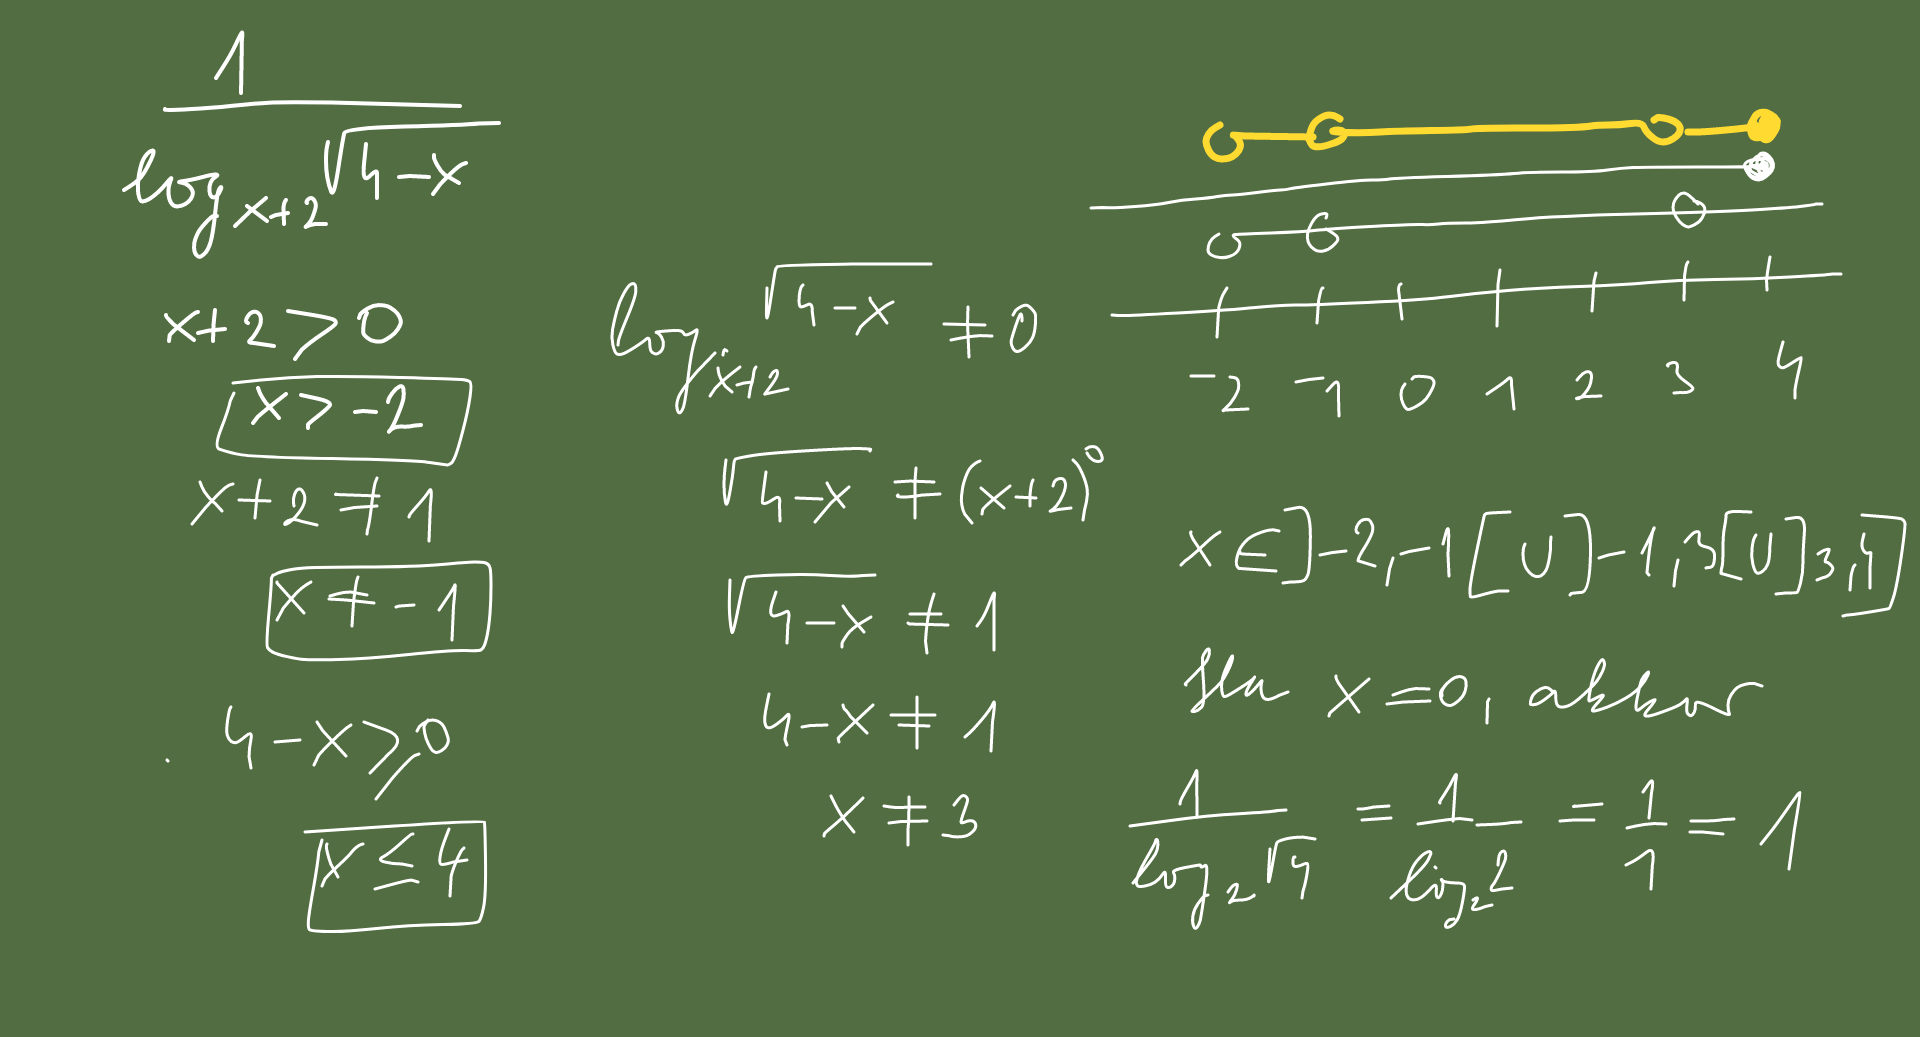 1
log_{x+2} √(4-x)
x+2>0
x>-2
x+2≠1
x≠-1
4-x≥0
x≤4
log_{x+2} √(4-x) ≠0
√(4-x) ≠(x+2)^0
√(4-x) ≠1
4-x≠1
x≠3
-2 -1 0 1 2 3 4
x∈]-2,-1[U]-1,3[U]3,4]
Ha x=0, akkor
1/(log_2 √4) = 1/(log_2 2) = 1/1 = 1